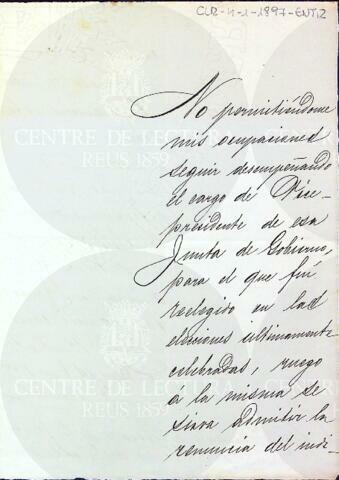 CLR-4-1-1897-ENT.2
No permitiéndome
mis ocupaciones
seguir desempeñando
el cargo de Vice-
presidente de esa
Junta de Gobierno,
para el que fuí
reelegido en las
elecciones últimamente
celebradas, ruego
á la misma se
sirva admitir la
renuncia del indi-
CENTRE DE LECTURA
REUS 1859
CENTRE DE LECTURA
REUS 1859